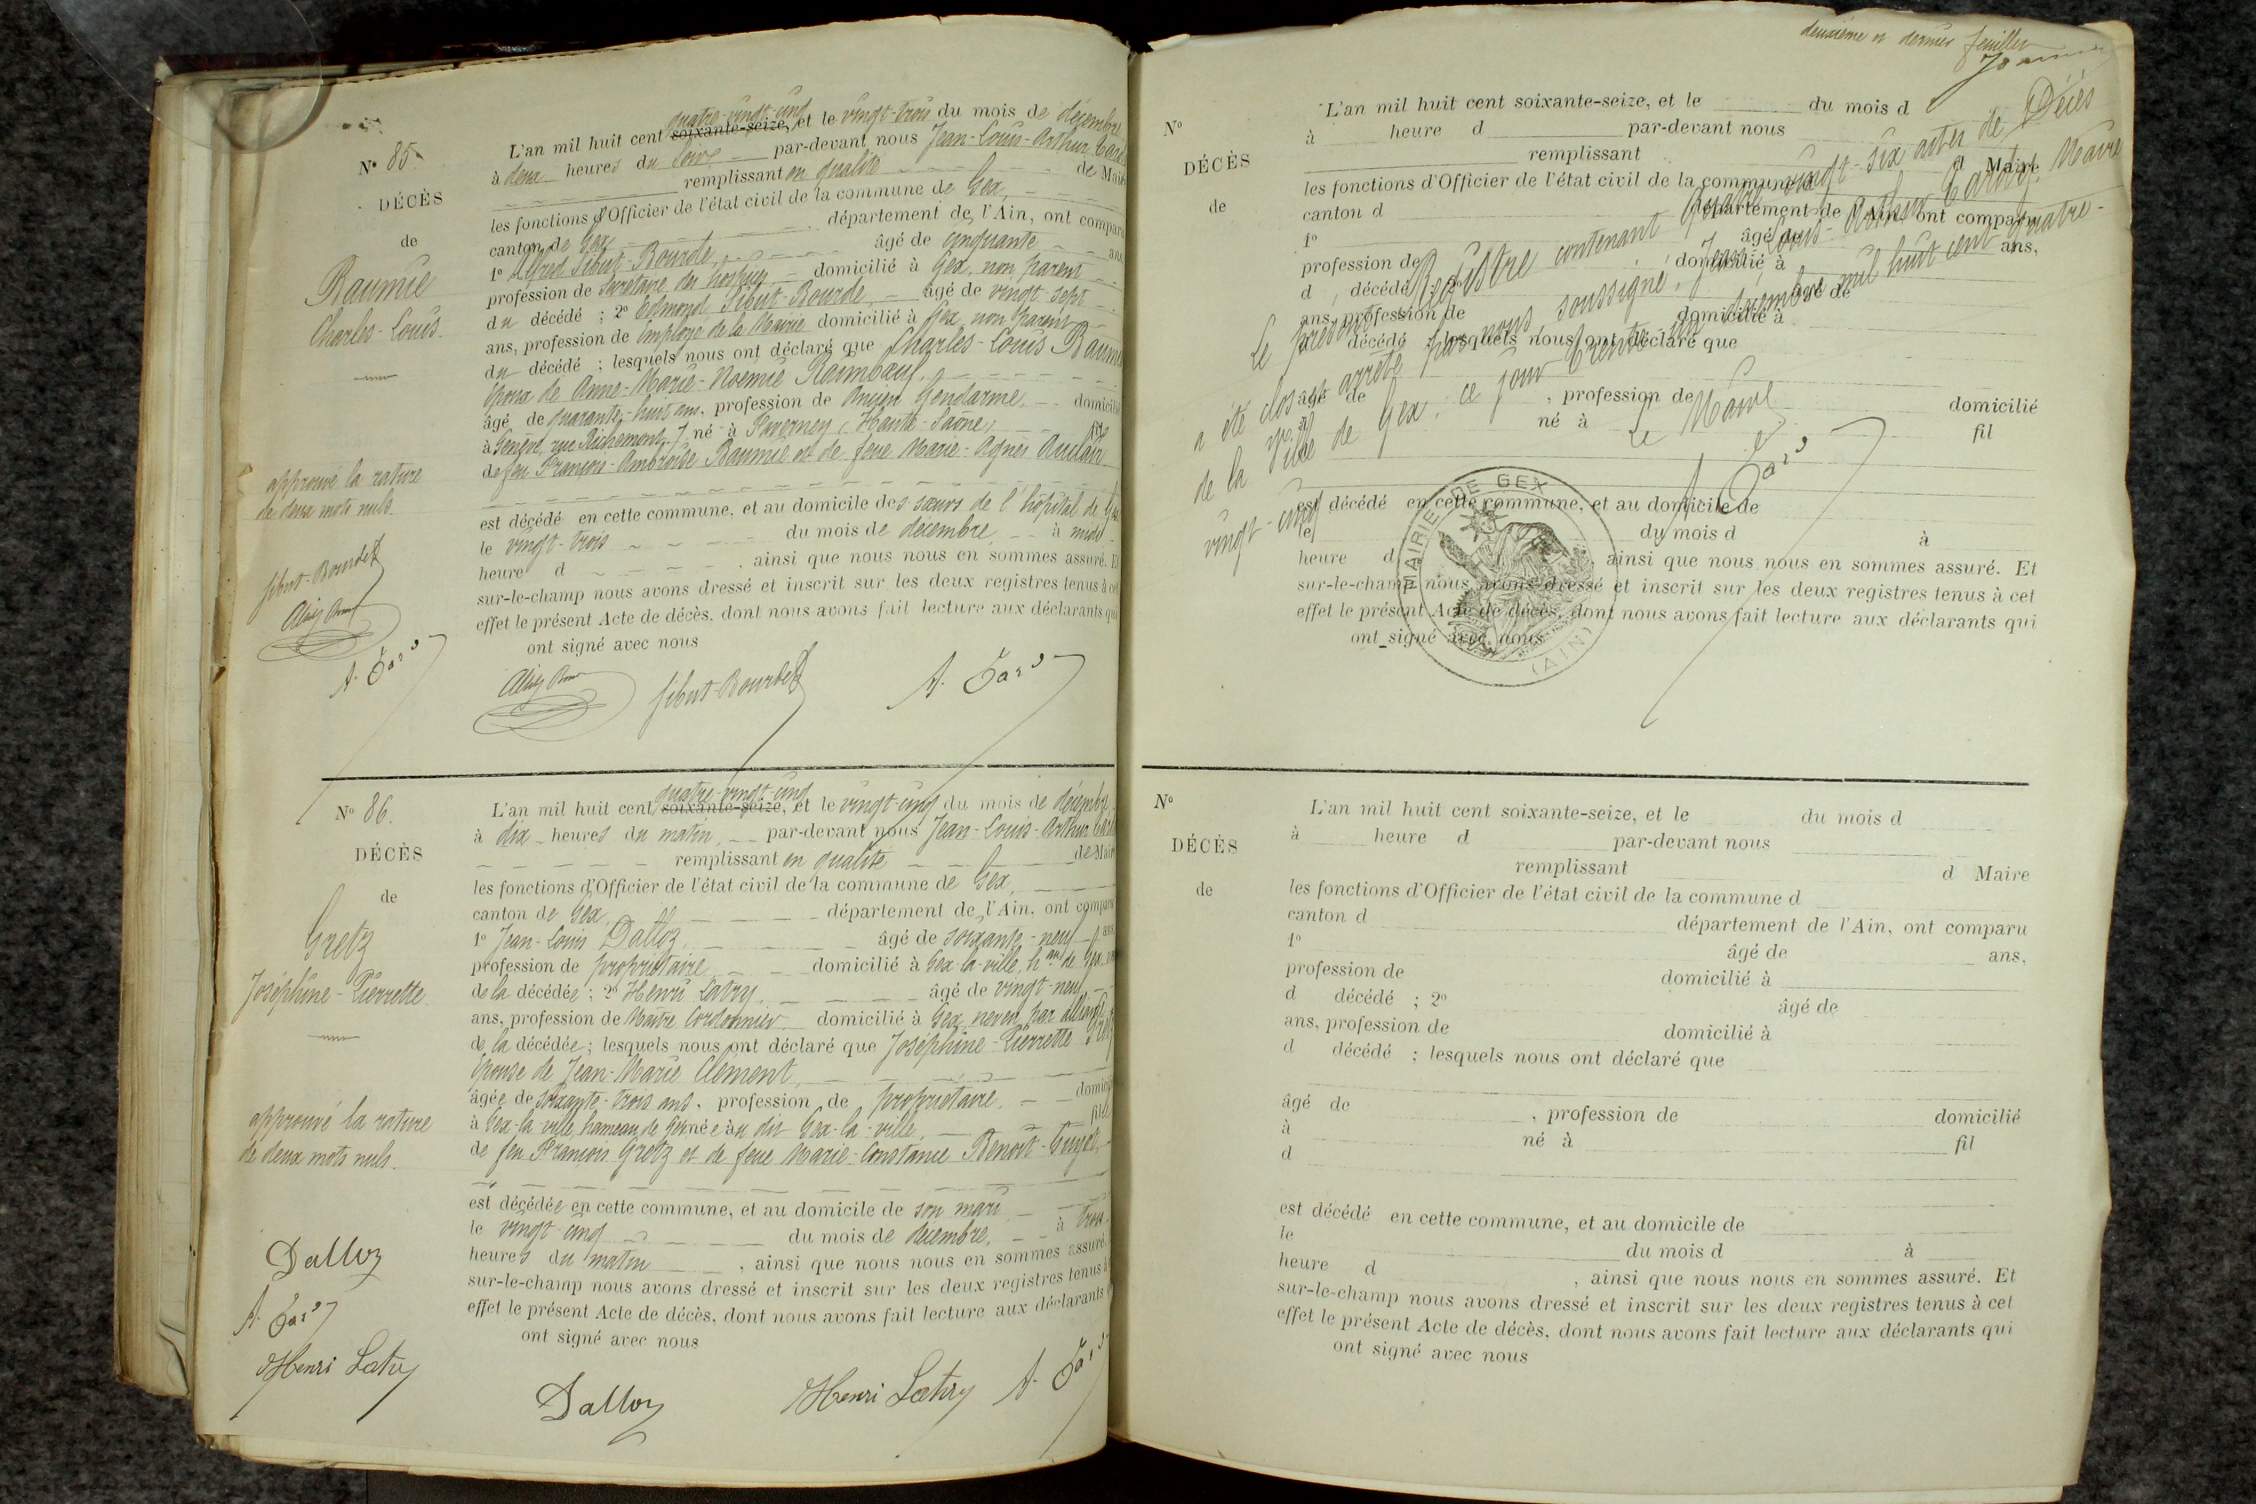 N° 85
DÉCÈS
de
Baumié
Charles-Louis.
approuvé la rature
de deux mots nuls.
Sibut-Bourde
L'an mil huit cent soixante-seize, quatre-vingt-cinq et le vingt-trois du mois de décembre
à deux heures du soir par-devant nous Jean-Louis-Arthur
remplissant en qualité de Maire
les fonctions d'Officier de l'état civil de la commune de Gex,
canton de Gex département de l'Ain, ont comparu
1° Alfred Sibut-Bourde, âgé de cinquante ans
profession de Secrétaire des hospices domicilié à Gex, non parent
du décédé ; 2° Edmond Sibut-Bourde, âgé de vingt-sept
ans, profession de Employé de la Mairie domicilié à Gex, non parent
du décédé ; lesquels nous ont déclaré que Charles-Louis Baumié
époux de Anne-Marie-Noémie Raimbauf,
âgé de quarante-huit ans, profession de Ancien Gendarme, domicilié
à Genève, rue Richemont, 7, né à Faverney (Haute-Saône) fils
de feu François-Ambroise Baumié et de feue Marie-Agnès Auclair
est décédé en cette commune, et au domicile des sœurs de l'hôpital de Gex
le vingt-trois du mois de décembre, à midi
heure d ainsi que nous nous en sommes assuré. Et
sur-le-champ nous avons dressé et inscrit sur les deux registres tenus à cet
effet le présent Acte de décès, dont nous avons fait lecture aux déclarants qui
ont signé avec nous
Sibut-Bourde
N° 86.
DÉCÈS
de
Gretz
Joséphine-Pierrette
approuvé la rature
de deux mots nuls.
Dalloz
Henri Latry
L'an mil huit cent soixante-seize, quatre-vingt-cinq et le vingt-cinq du mois de décembre
à dix heures du matin, par-devant nous Jean-Louis-Arthur
remplissant en qualité de Maire
les fonctions d'Officier de l'état civil de la commune de Gex,
canton de Gex, département de l'Ain, ont comparu
1° Jean-Louis Dalloz, âgé de soixante-neuf ans
profession de propriétaire domicilié à Gex-la-ville, h.au de Gex,
de la décédée ; 2° Henri Latry, âgé de vingt-neuf
ans, profession de Maître Cordonnier domicilié à Gex, neveu par alliance
de la décédée ; lesquels nous ont déclaré que Joséphine-Pierrette Gretz
épouse de Jean-Marie Clément,
âgée de soixante-trois ans, profession de propriétaire, domicilié
à Gex-la-ville, hameau de Gex née au dit Gex-la-ville, fille
de feu François Gretz et de feue Marie-Constance Benoît-Guyot,
est décédée en cette commune, et au domicile de son mari
le vingt-cinq du mois de décembre, à trois
heures du matin, ainsi que nous nous en sommes assuré.
sur-le-champ nous avons dressé et inscrit sur les deux registres tenus à
effet le présent Acte de décès, dont nous avons fait lecture aux déclarants
ont signé avec nous
Dalloz
Henri Latry
deuxième et dernier feuillet
N°
DÉCÈS
de
L'an mil huit cent soixante-seize, et le du mois d
à heure d par-devant nous
remplissant d Maire
les fonctions d'Officier de l'état civil de la commune d
canton d département de l'Ain, ont comparu
1° âgé de ans,
profession de domicilié à
d décédé ; 2° âgé de
ans, profession de domicilié à
d décédé ; lesquels nous ont déclaré que
âgé de , profession de domicilié
à né à fil
d
est décédé en cette commune, et au domicile de
le du mois d à
heure d ainsi que nous nous en sommes assuré. Et
sur-le-champ nous avons dressé et inscrit sur les deux registres tenus à cet
effet le présent Acte de décès, dont nous avons fait lecture aux déclarants qui
ont signé avec nous
Le présent Registre contenant quatre-vingt-six actes de Décès
a été clos et arrêté par nous soussigné, Jean-Louis-Arthur Maire
de la Ville de Gex, ce jour trente-un décembre mil huit cent quatre-
vingt-cinq
Le Maire
MAIRIE DE GEX
(AIN)
N°
DÉCÈS
de
L'an mil huit cent soixante-seize, et le du mois d
à heure d par-devant nous
remplissant d Maire
les fonctions d'Officier de l'état civil de la commune d
canton d département de l'Ain, ont comparu
1° âgé de ans,
profession de domicilié à
d décédé ; 2° âgé de
ans, profession de domicilié à
d décédé ; lesquels nous ont déclaré que
âgé de , profession de domicilié
à né à fil
d
est décédé en cette commune, et au domicile de
le du mois d à
heure d , ainsi que nous nous en sommes assuré. Et
sur-le-champ nous avons dressé et inscrit sur les deux registres tenus à cet
effet le présent Acte de décès, dont nous avons fait lecture aux déclarants qui
ont signé avec nous